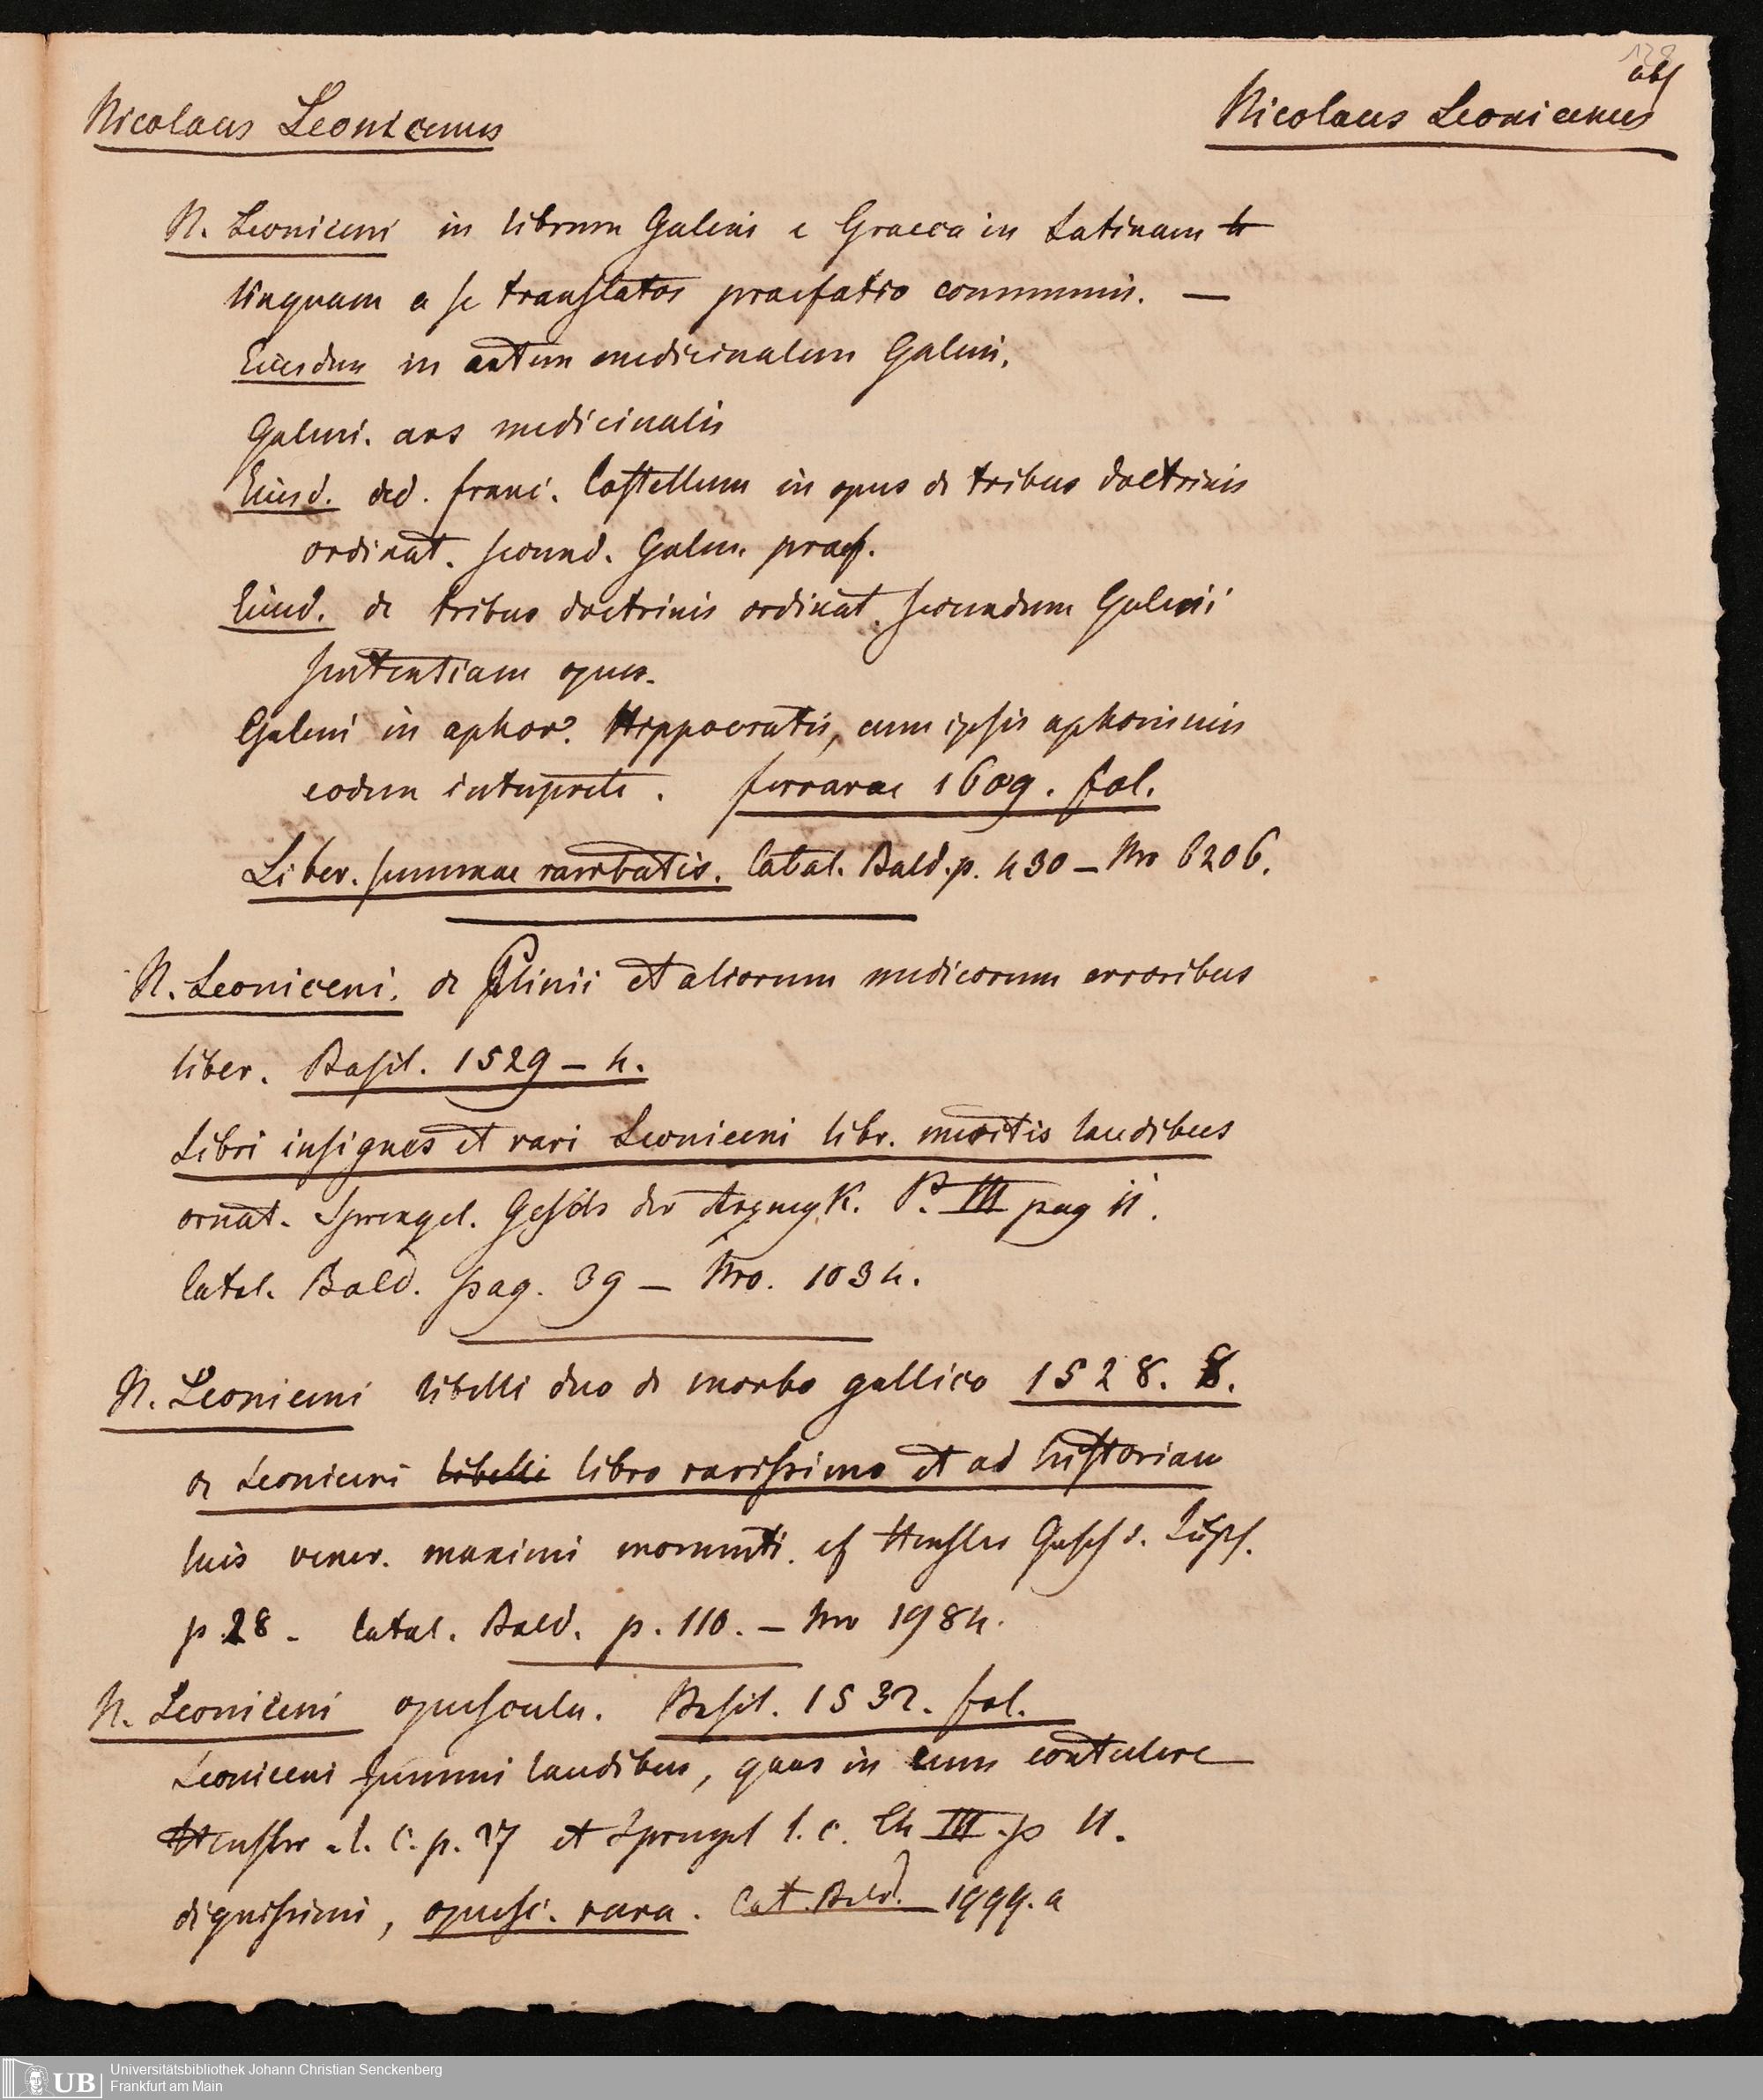 128
abs
Nicolaus Leonicenus
Nicolaus Leonicenus
N. Leoniceni in librum Galeni e Graeca in Latinam
linguam a se translatos praefatio communis. —
Eiusdem in artem medicinalem Galeni.
Galeni. ars medicinalis
Eiusd. ad. franc. Castellum in opus de tribus doctrinis
ordinat. secund. Galen. praef.
Eiusd. de tribus doctrinis ordinat. secundum Galenii
sententiam opus.
Galeni in aphor. Hippocratis, cum ipsis aphorismis
eodem interprete. ferrarae 1609. fol.
Liber. summae raritatis. Catal. Bald. p. 430 – Nro 6206.
N. Leoniceni. de Plinii et aliorum medicorum erroribus
liber. Basil. 1529 – 4.
Libri insignes et rari Leoniceni libr. meritis laudibus
ornat. Sprengel. Gesch der ArzneyK. P. III pag 11.
Catal. Bald. pag. 39 – Nro. 1034.
N. Leoniceni libelli duo de morbo gallico 1528. 8.
de Leoniceni libelli libro rarissimo et ad historiam
luis vener. maximi momenti. cf Hensler Gesch d. Lusts.
p. 28 – Catal. Bald. p. 110. – Nro 1984.
N. Leoniceni opuscula. Basil. 1532. fol.
Leoniceni summi laudibus, quas in eum contulere
Hensler l. c. p. 27 et Sprengel l. c. Th III. p 11.
dignissimi, opusc. rara. Cat. Bald. 1999. a
UB
Universitätsbibliothek Johann Christian Senckenberg
Frankfurt am Main